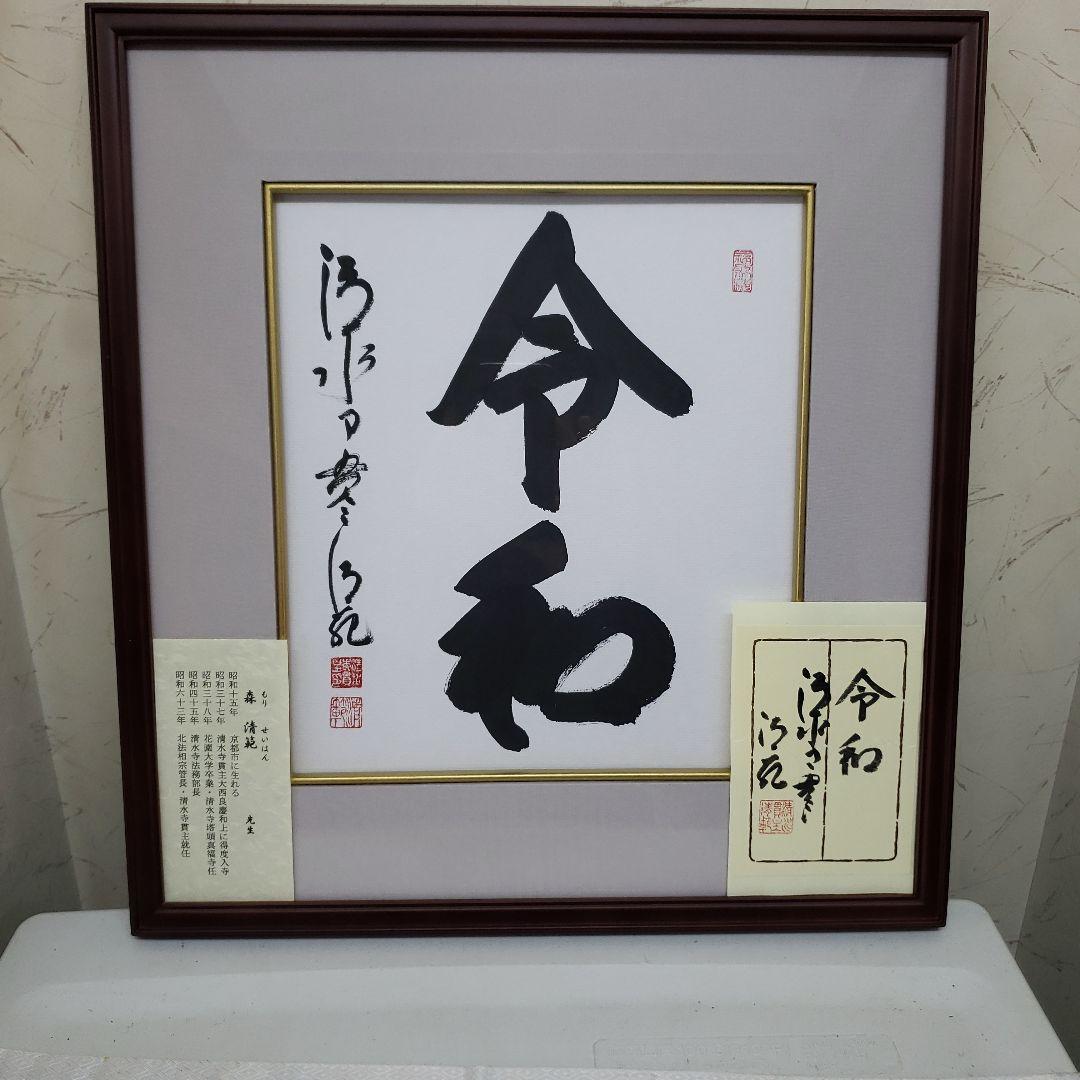 令和
清水寺貫主 清範
森 清範 先生
もり せいはん
昭和十五年 京都市に生れる
昭和三十七年 清水寺貫主大西良慶和上に得度入寺
昭和三十八年 花園大学卒業・清水寺塔頭真福寺住
昭和四十五年 清水寺法務部長
昭和六十三年 北法相宗管長・清水寺貫主就任
令和
清範